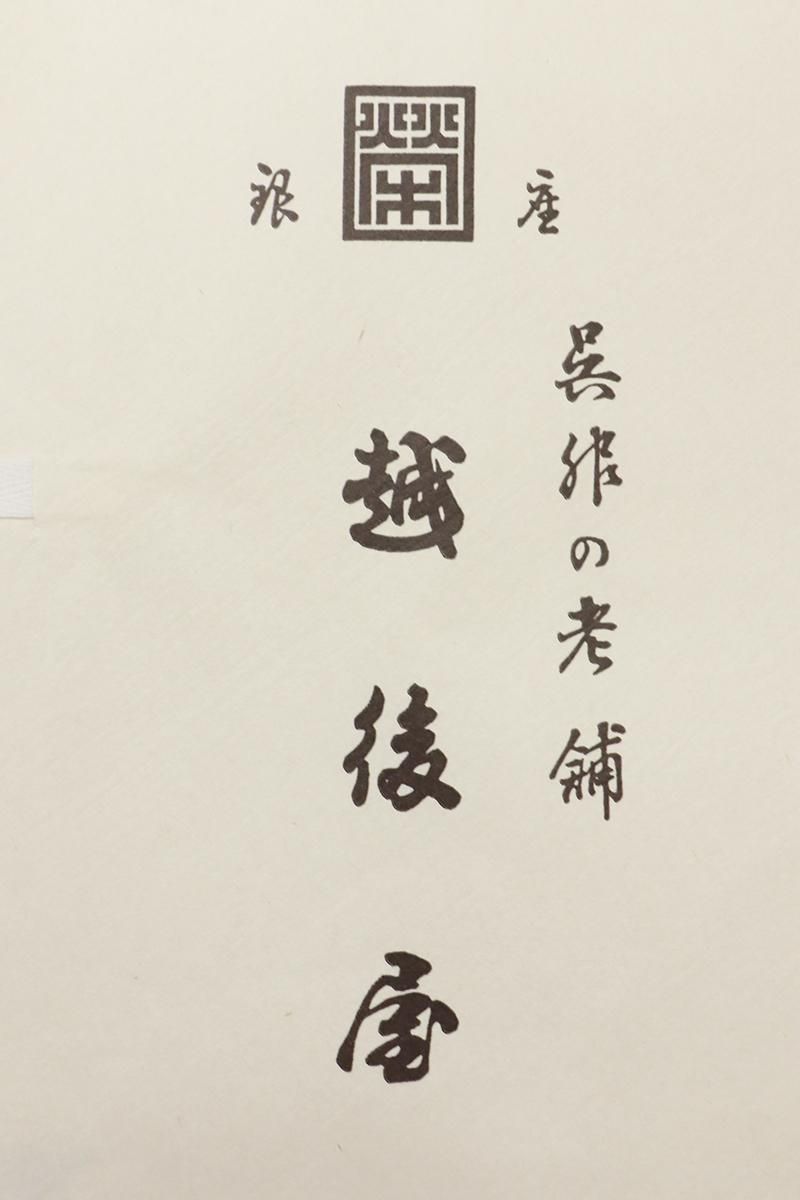 銀 榮 座
呉服の老舗
越後屋